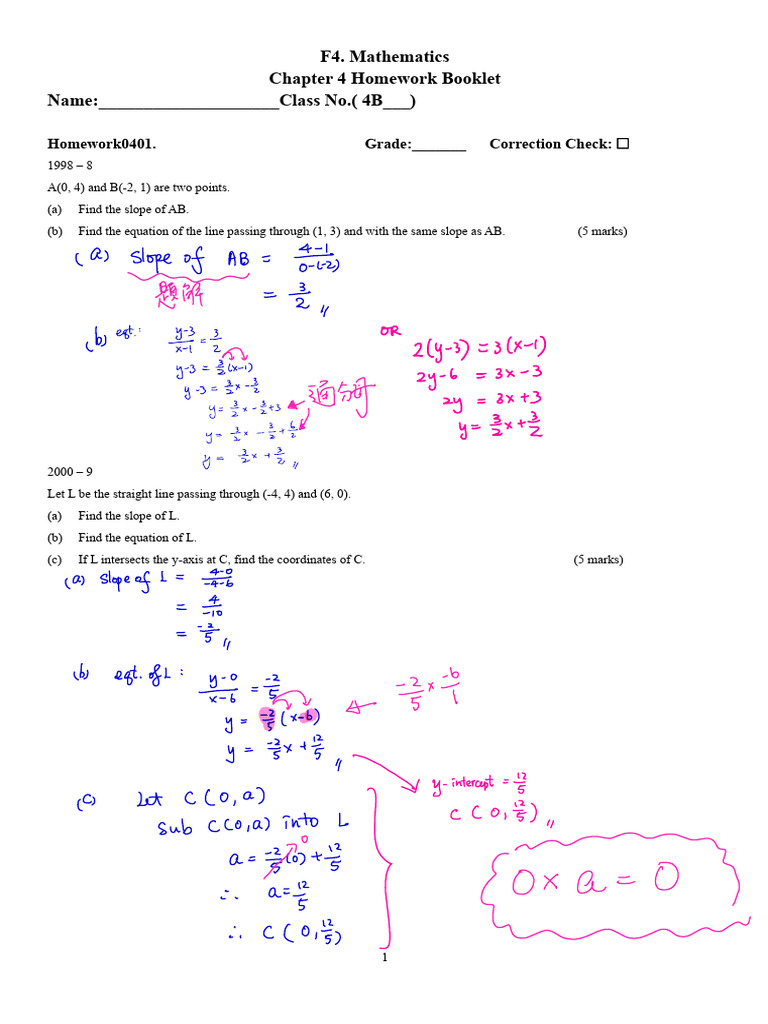 F4. Mathematics
Chapter 4 Homework Booklet
Name:____________________Class No.( 4B___)
Homework0401. Grade:_______ Correction Check: ☐
1998 – 8
A(0, 4) and B(-2, 1) are two points.
(a) Find the slope of AB.
(b) Find the equation of the line passing through (1, 3) and with the same slope as AB. (5 marks)
(a) Slope of AB = (4-1)/(0-(-2))
題解
= 3/2 //
(b) eqt.: (y-3)/(x-1) = 3/2
y-3 = 3/2 (x-1)
y-3 = 3/2 x - 3/2
y = 3/2 x - 3/2 + 3
通分母
y = 3/2 x - 3/2 + 6/2
y = 3/2 x + 3/2 //
OR
2(y-3) = 3(x-1)
2y-6 = 3x-3
2y = 3x+3
y = 3/2 x + 3/2
2000 – 9
Let L be the straight line passing through (-4, 4) and (6, 0).
(a) Find the slope of L.
(b) Find the equation of L.
(c) If L intersects the y-axis at C, find the coordinates of C. (5 marks)
(a) Slope of L = (4-0)/(-4-6)
= 4/-10
= -2/5 //
(b) eqt. of L : (y-0)/(x-6) = -2/5
y = -2/5 (x-6)
-2/5 × -6/1
y = -2/5 x + 12/5 //
y-intercept = 12/5
C (0, 12/5) //
(c) Let C(0,a)
Sub C(0,a) into L
a = -2/5 (0) + 12/5
0
∴ a = 12/5
∴ C (0, 12/5)
0 × a = 0
1